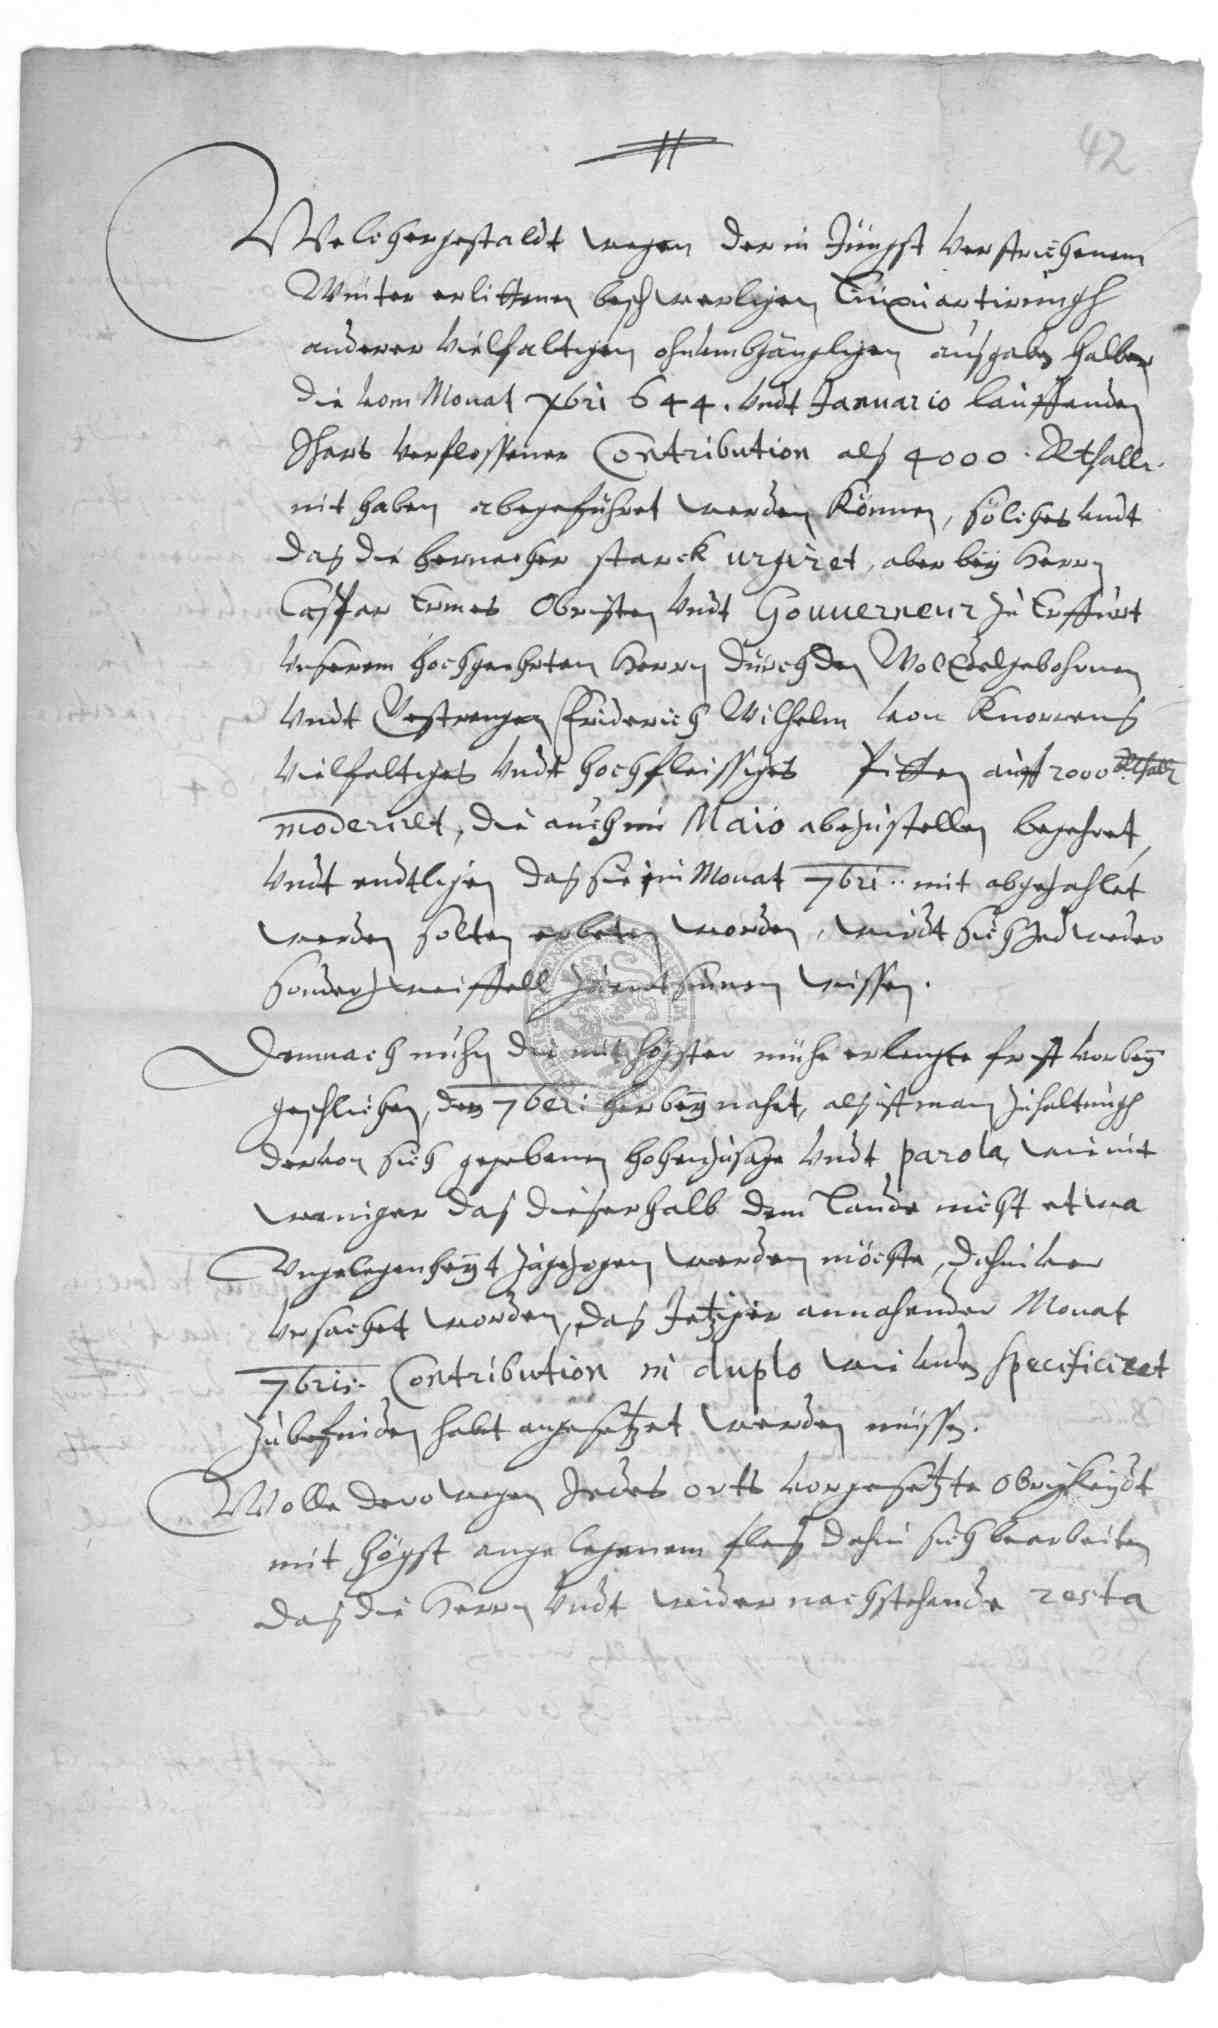 42
Welchergestaldt wegen der in Jüngst verstrichenem
Winter erlittenen beschwerligen Einquartirungh
anderer vielfaltigen ohnumbgängligen ausgaben halber
die vom Monat xbri 644. undt Januario lauffenden
Jhars verflossener Contribution als 4000. Rthall.
nit haben abgeführet werden können, solches undt
das die hernacher starck urgiret, aber bey Herrn
Caspar Ermes Obristen undt Gouverneur zu Erffurt
unserem hochgeehrten Herrn durch den Wol Edelgebohrnen
undt Gestrengen Friderich Wilhelm von Knorrens
vielfaltiges undt hochfleissiges bitten auff 2000 Rthall
moderiret, die auch im Maio abzustellen begehret,
undt endtligen das sie im Monat 7bri.. mit abgezahlet
werden solten erbeten worden, wirdt sich Jedweder
sonder zweiffell zuentsinnen wissen.
Demnach nuhn die mit högster mühe erlengte frist vorbey
geschlichen, der 7ber: herbey nahet, als ist man zuhaltungh
der von sich gegebenen hohen zusage undt parola, wie nit
weniger das dieserhalb dem Lande nicht etwa
Ungelegenheyt zugezogen werden möchte, dahin
verursachet worden, das Jetziger annahender Monat
7bris. Contribution in duplo wie unden specificiret
zubefinden habt angesetzet werden müssen.
Wolle derowegen Jedes orts vorgesetzte Obrigkeydt
mit högst angelegenem fleis dahin sich bearbeiten
das die Herrn undt wider nachstehende resta